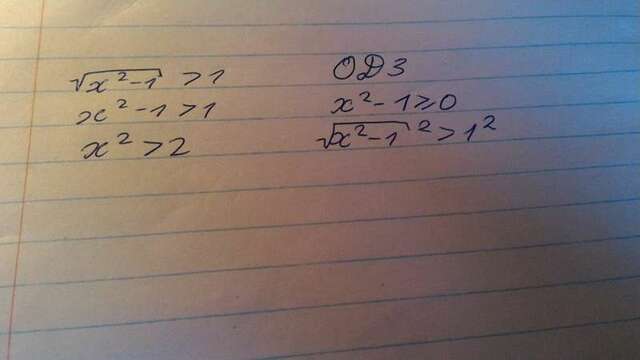 √x²-1 >1
x²-1>1
x²>2
ОДЗ
x²-1≥0
√x²-1 ²>1²